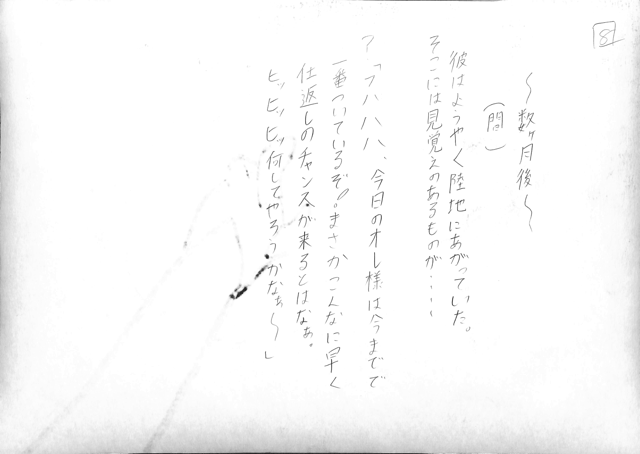 8
〜数ヶ月後〜
（間）
彼はようやく陸地にあがっていた。
そこには見覚えのあるものが・・・・
？「フハハハ、今日のオレ様は今までで
一番ついているぞ。まさかこんなに早く
仕返しのチャンスが来るとはなぁ。
ヒッヒッヒッ何してやろうかなぁ〜」